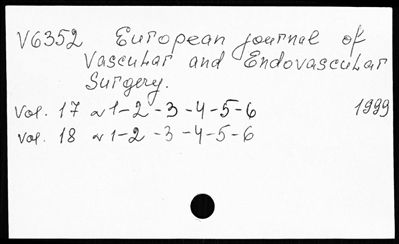 V6352 European journal of
Vascular and Endovascular
Surgery.
Vol. 17 N 1-2-3-4-5-6 1999
Vol. 18 N 1-2-3-4-5-6